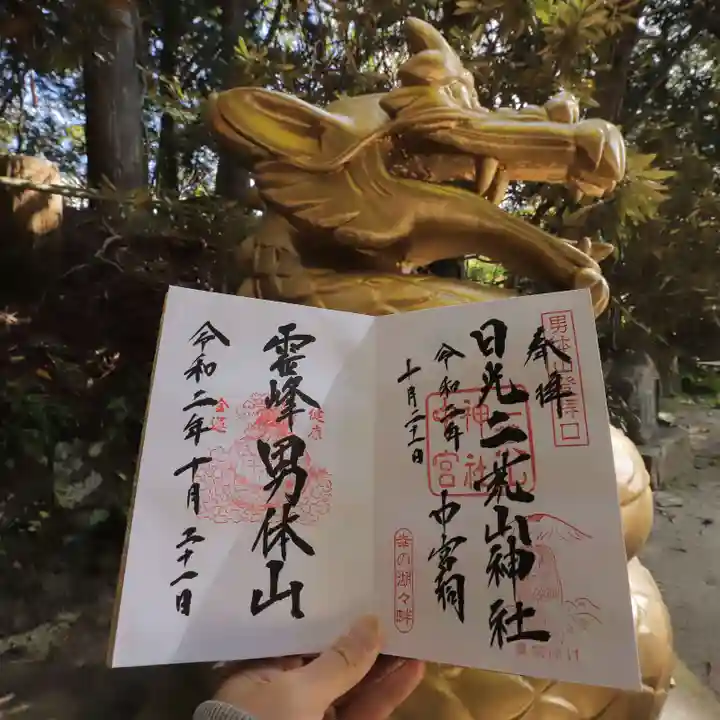 奉拝
男体山登拝口
日光二荒山神社
中宮祠
令和二年
十月三十一日
幸の湖々畔
霊峰男体山
健康
金運
令和二年十月三十一日